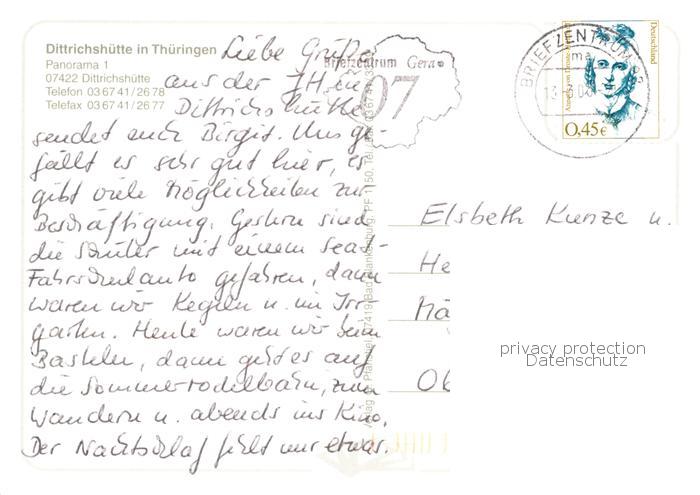 Dittrichshütte in Thüringen
Panorama 1
07422 Dittrichshütte
Telefon 03 67 41 / 26 78
Telefax 03 67 41 / 26 77
Liebe Grüße
aus der JH in
Dittrichshütte
sendet euch Birgit. Uns ge-
fällt es sehr gut hier, es
gibt viele Möglichkeiten zur
Beschäftigung. Gestern sind
die Schüler mit einem Seat-
Fahrschulauto gefahren, dann
waren wir Kegeln u. im Irr-
garten. Heute waren wir beim
Basteln, dann geht es auf
die Sommerrodelbahn, zum
Wandern u. abends ins Kino.
Der Nachtschlaf fehlt nur etwas.
Briefzentrum Gera
07
BRIEFZENTRUM
ma
Deutschland
0,45€
Elsbeth Kunze u.
He
Nä
Ob
privacy protection
Datenschutz